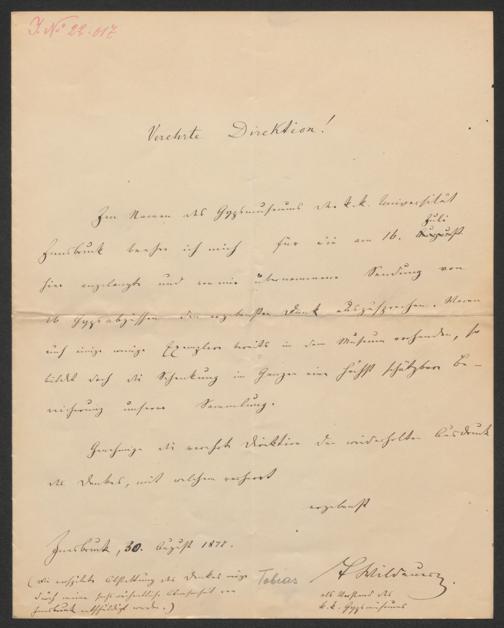 J. No 22.017
Verehrte Direktion!
Im Namen des Gypsmuseums der k.k. Universität
Juli
Innsbruck beehre ich mich für die am 16. August
hier angelangte und von mir übernommene Sendung von
Gypsabgüssen den ergebensten Dank auszusprechen. Waren
auch einige wenige Exemplare bereits in dem Museum vorhanden, so
bildet doch die Schenkung im Ganzen eine höchst schätzbare Be-
reicherung unserer Sammlung.
Genehmige die verehrte Direktion den wiederholten Ausdruck
des Dankes, mit welchem verharrt
ergebenst
Innsbruck, 30. August 1878.
(Die verspätete Abstattung des Dankes möge
Tobias
Wildauer
durch meine Abwesenheit von
als Vorstand des
Innsbruck entschuldigt werden.)
k.k. Gypsmuseums